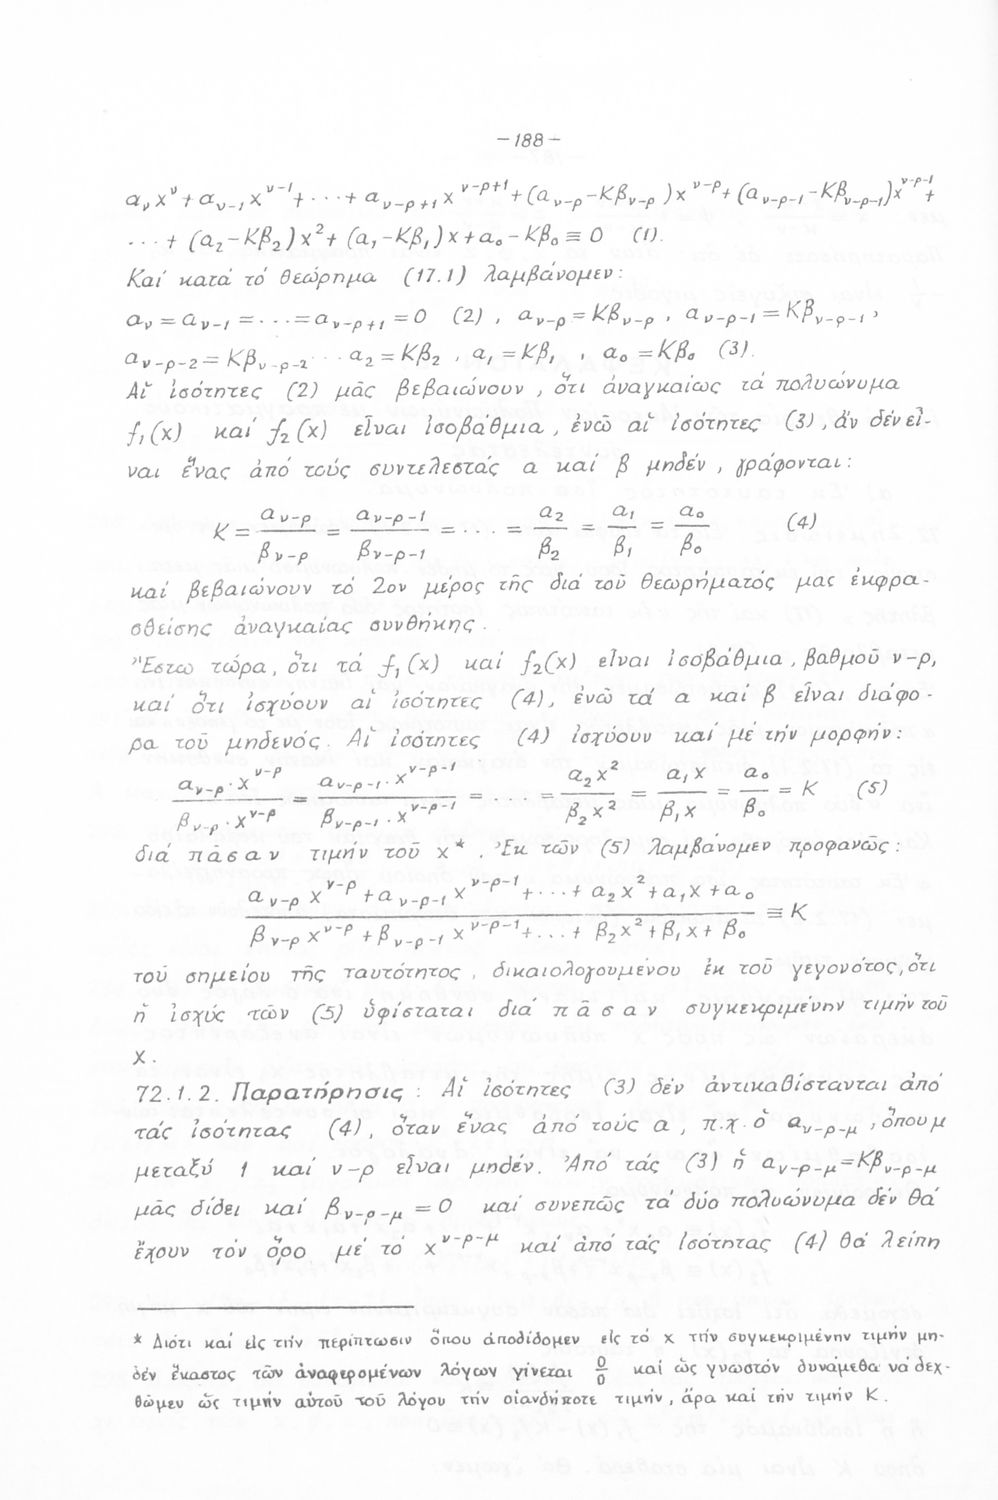 -188-
α_ν x^ν + α_{ν-1} x^{ν-1} + ··· + α_{ν-ρ+1} x^{ν-ρ+1} + (α_{ν-ρ} - Κβ_{ν-ρ}) x^{ν-ρ} + (α_{ν-ρ-1} - Κβ_{ν-ρ-1}) x^{ν-ρ-1} +
··· + (α_2 - Κβ_2) x^2 + (α_1 - Κβ_1) x + α_0 - Κβ_0 ≡ 0 (1).
Καί κατά τό θεώρημα (17.1) λαμβάνομεν:
α_ν = α_{ν-1} = ··· = α_{ν-ρ+1} = 0 (2), α_{ν-ρ} = Κβ_{ν-ρ}, α_{ν-ρ-1} = Κβ_{ν-ρ-1},
α_{ν-ρ-2} = Κβ_{ν-ρ-2} ··· α_2 = Κβ_2, α_1 = Κβ_1, α_0 = Κβ_0 (3).
Αἵ ἰσότητες (2) μᾶς βεβαιώνουν, ὅτι ἀναγκαίως τά πολυώνυμα
f_1(x) καί f_2(x) εἶναι ἰσοβάθμια, ἐνῶ αἵ ἰσότητες (3), ἄν δέν εἶ-
ναι ἕνας ἀπό τούς συντελεστάς α καί β μηδέν, γράφονται:
Κ = α_{ν-ρ}/β_{ν-ρ} = α_{ν-ρ-1}/β_{ν-ρ-1} = ··· = α_2/β_2 = α_1/β_1 = α_0/β_0 (4)
καί βεβαιώνουν τό 2ον μέρος τῆς διά τοῦ θεωρήματός μας ἐκφρα-
σθείσης ἀναγκαίας συνθήκης.
Ἔστω τώρα, ὅτι τά f_1(x) καί f_2(x) εἶναι ἰσοβάθμια, βαθμοῦ ν-ρ,
καί ὅτι ἰσχύουν αἱ ἰσότητες (4), ἐνῶ τά α καί β εἶναι διάφο-
ρα τοῦ μηδενός. Αἱ ἰσότητες (4) ἰσχύουν καί μέ τήν μορφήν:
α_{ν-ρ}·x^{ν-ρ}/β_{ν-ρ}·x^{ν-ρ} = α_{ν-ρ-1}·x^{ν-ρ-1}/β_{ν-ρ-1}·x^{ν-ρ-1} = ··· = α_2x^2/β_2x^2 = α_1x/β_1x = α_0/β_0 = Κ (5)
διά πᾶσαν τιμήν τοῦ x*. Ἐκ τῶν (5) λαμβάνομεν προφανῶς:
α_{ν-ρ} x^{ν-ρ} + α_{ν-ρ-1} x^{ν-ρ-1} + ··· + α_2x^2 + α_1x + α_0 / β_{ν-ρ} x^{ν-ρ} + β_{ν-ρ-1} x^{ν-ρ-1} + ... + β_2x^2 + β_1x + β_0 ≡ Κ
τοῦ σημείου τῆς ταυτότητος, δικαιολογουμένου ἐκ τοῦ γεγονότος, ὅτι
ἡ ἰσχύς τῶν (5) ὑφίσταται διά πᾶσαν συγκεκριμένην τιμήν τοῦ
x.
72.1.2. Παρατήρησις : Αἵ ἰσότητες (3) δέν ἀντικαθίστανται ἀπό
τάς ἰσότητας (4), ὅταν ἕνας ἀπό τούς α, π.χ. ὁ α_{ν-ρ-μ}, ὅπου μ
μεταξύ 1 καί ν-ρ εἶναι μηδέν. Ἀπό τάς (3) ἡ α_{ν-ρ-μ} = Κβ_{ν-ρ-μ}
μᾶς δίδει καί β_{ν-ρ-μ} = 0 καί συνεπῶς τά δύο πολυώνυμα δέν θά
ἔχουν τόν ὅρο μέ τό x^{ν-ρ-μ} καί ἀπό τάς ἰσότητας (4) θά λείπη
* Διότι καί εἰς τήν περίπτωσιν ὅπου ἀποδίδομεν εἰς τό x τήν συγκεκριμένην τιμήν μη-
δέν ἕκαστος τῶν ἀναφερομένων λόγων γίνεται 0/0 καί ὡς γνωστόν δυνάμεθα νά δεχ-
θῶμεν ὡς τιμήν αὐτοῦ τοῦ λόγου τήν οἱανδήποτε τιμήν, ἄρα καί τήν τιμήν Κ.